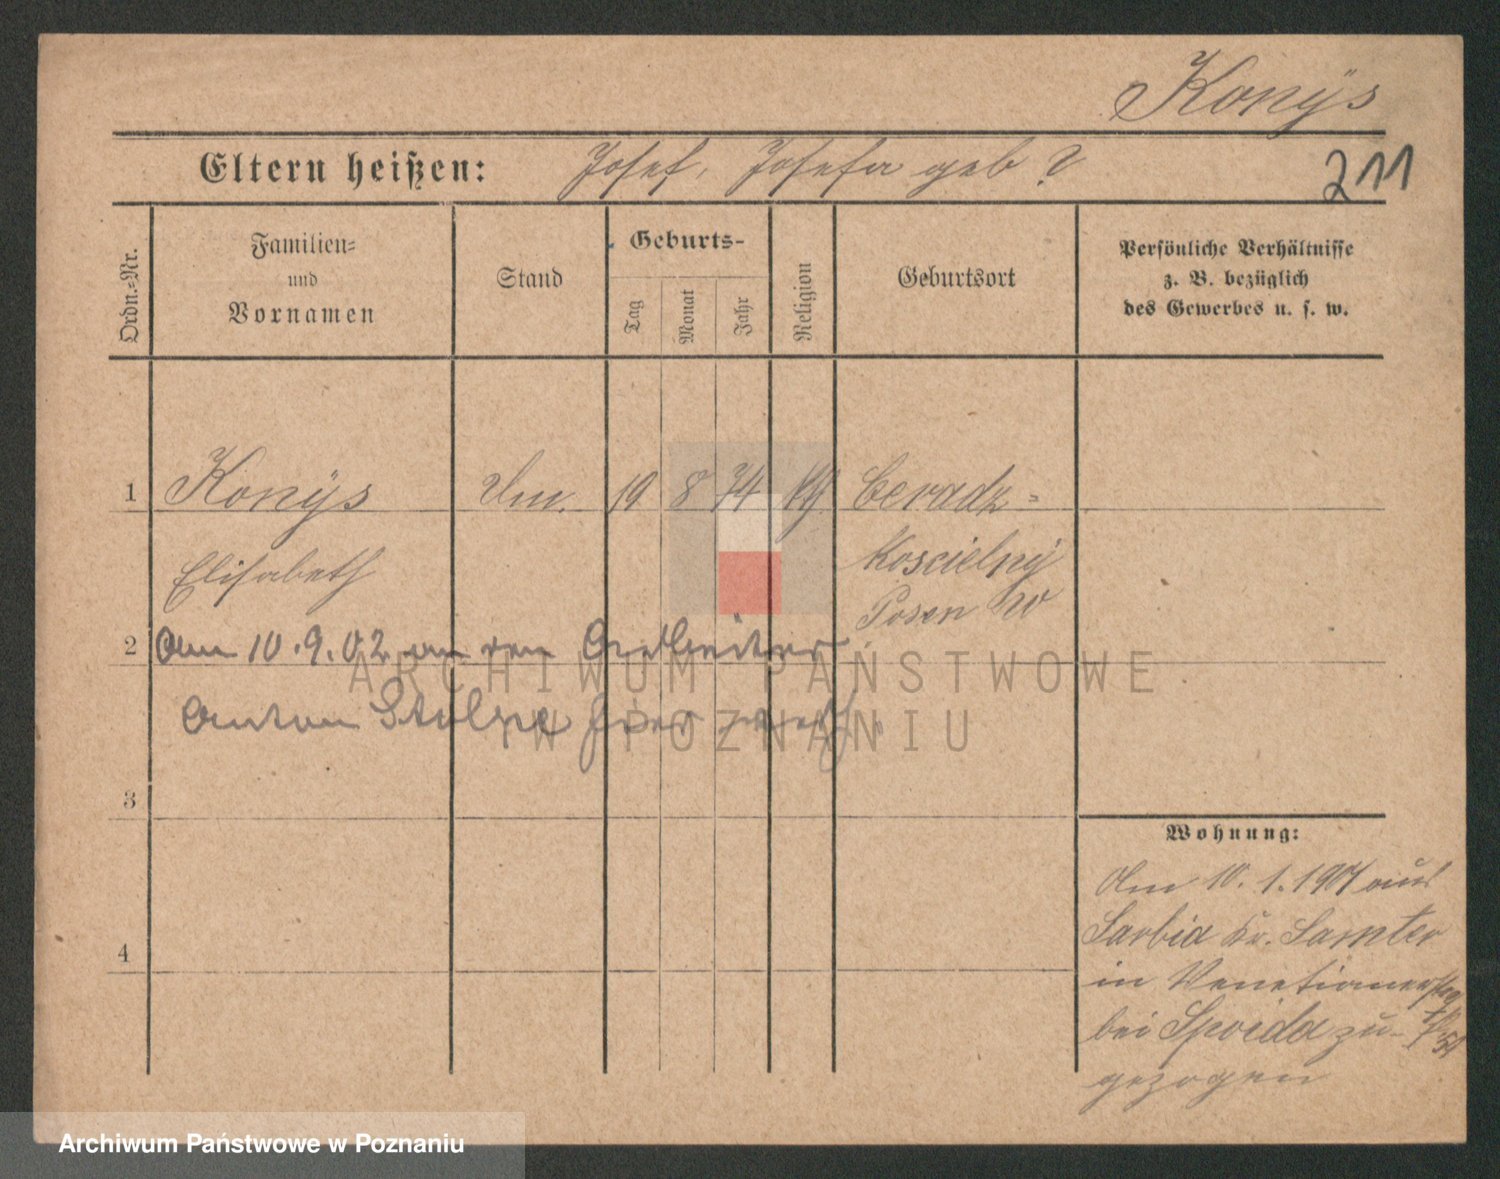 Konÿs
Eltern heißen: Josef, Josefa geb ?
211
Ordn.=Nr.
Familien=
und
Vornamen
Stand
Geburts-
Tag
Monat
Jahr
Religion
Geburtsort
Persönliche Verhältnisse
z. B. bezüglich
des Gewerbes u. s. w.
1 Konÿs 19 8 74 Ceradz=
Elisabeth Koscielny
Posen W
2 Am 10.9.02 an den Arbeiter
Anton Stolpe hier
ARCHIWUM PAŃSTWOWE
W POZNANIU
3
Wohnung:
Am 10.1.1901 aus
4 Sarbia Kr. Samter
in Venetianerstr
bei Spoida zu-
gezogen
Archiwum Państwowe w Poznaniu